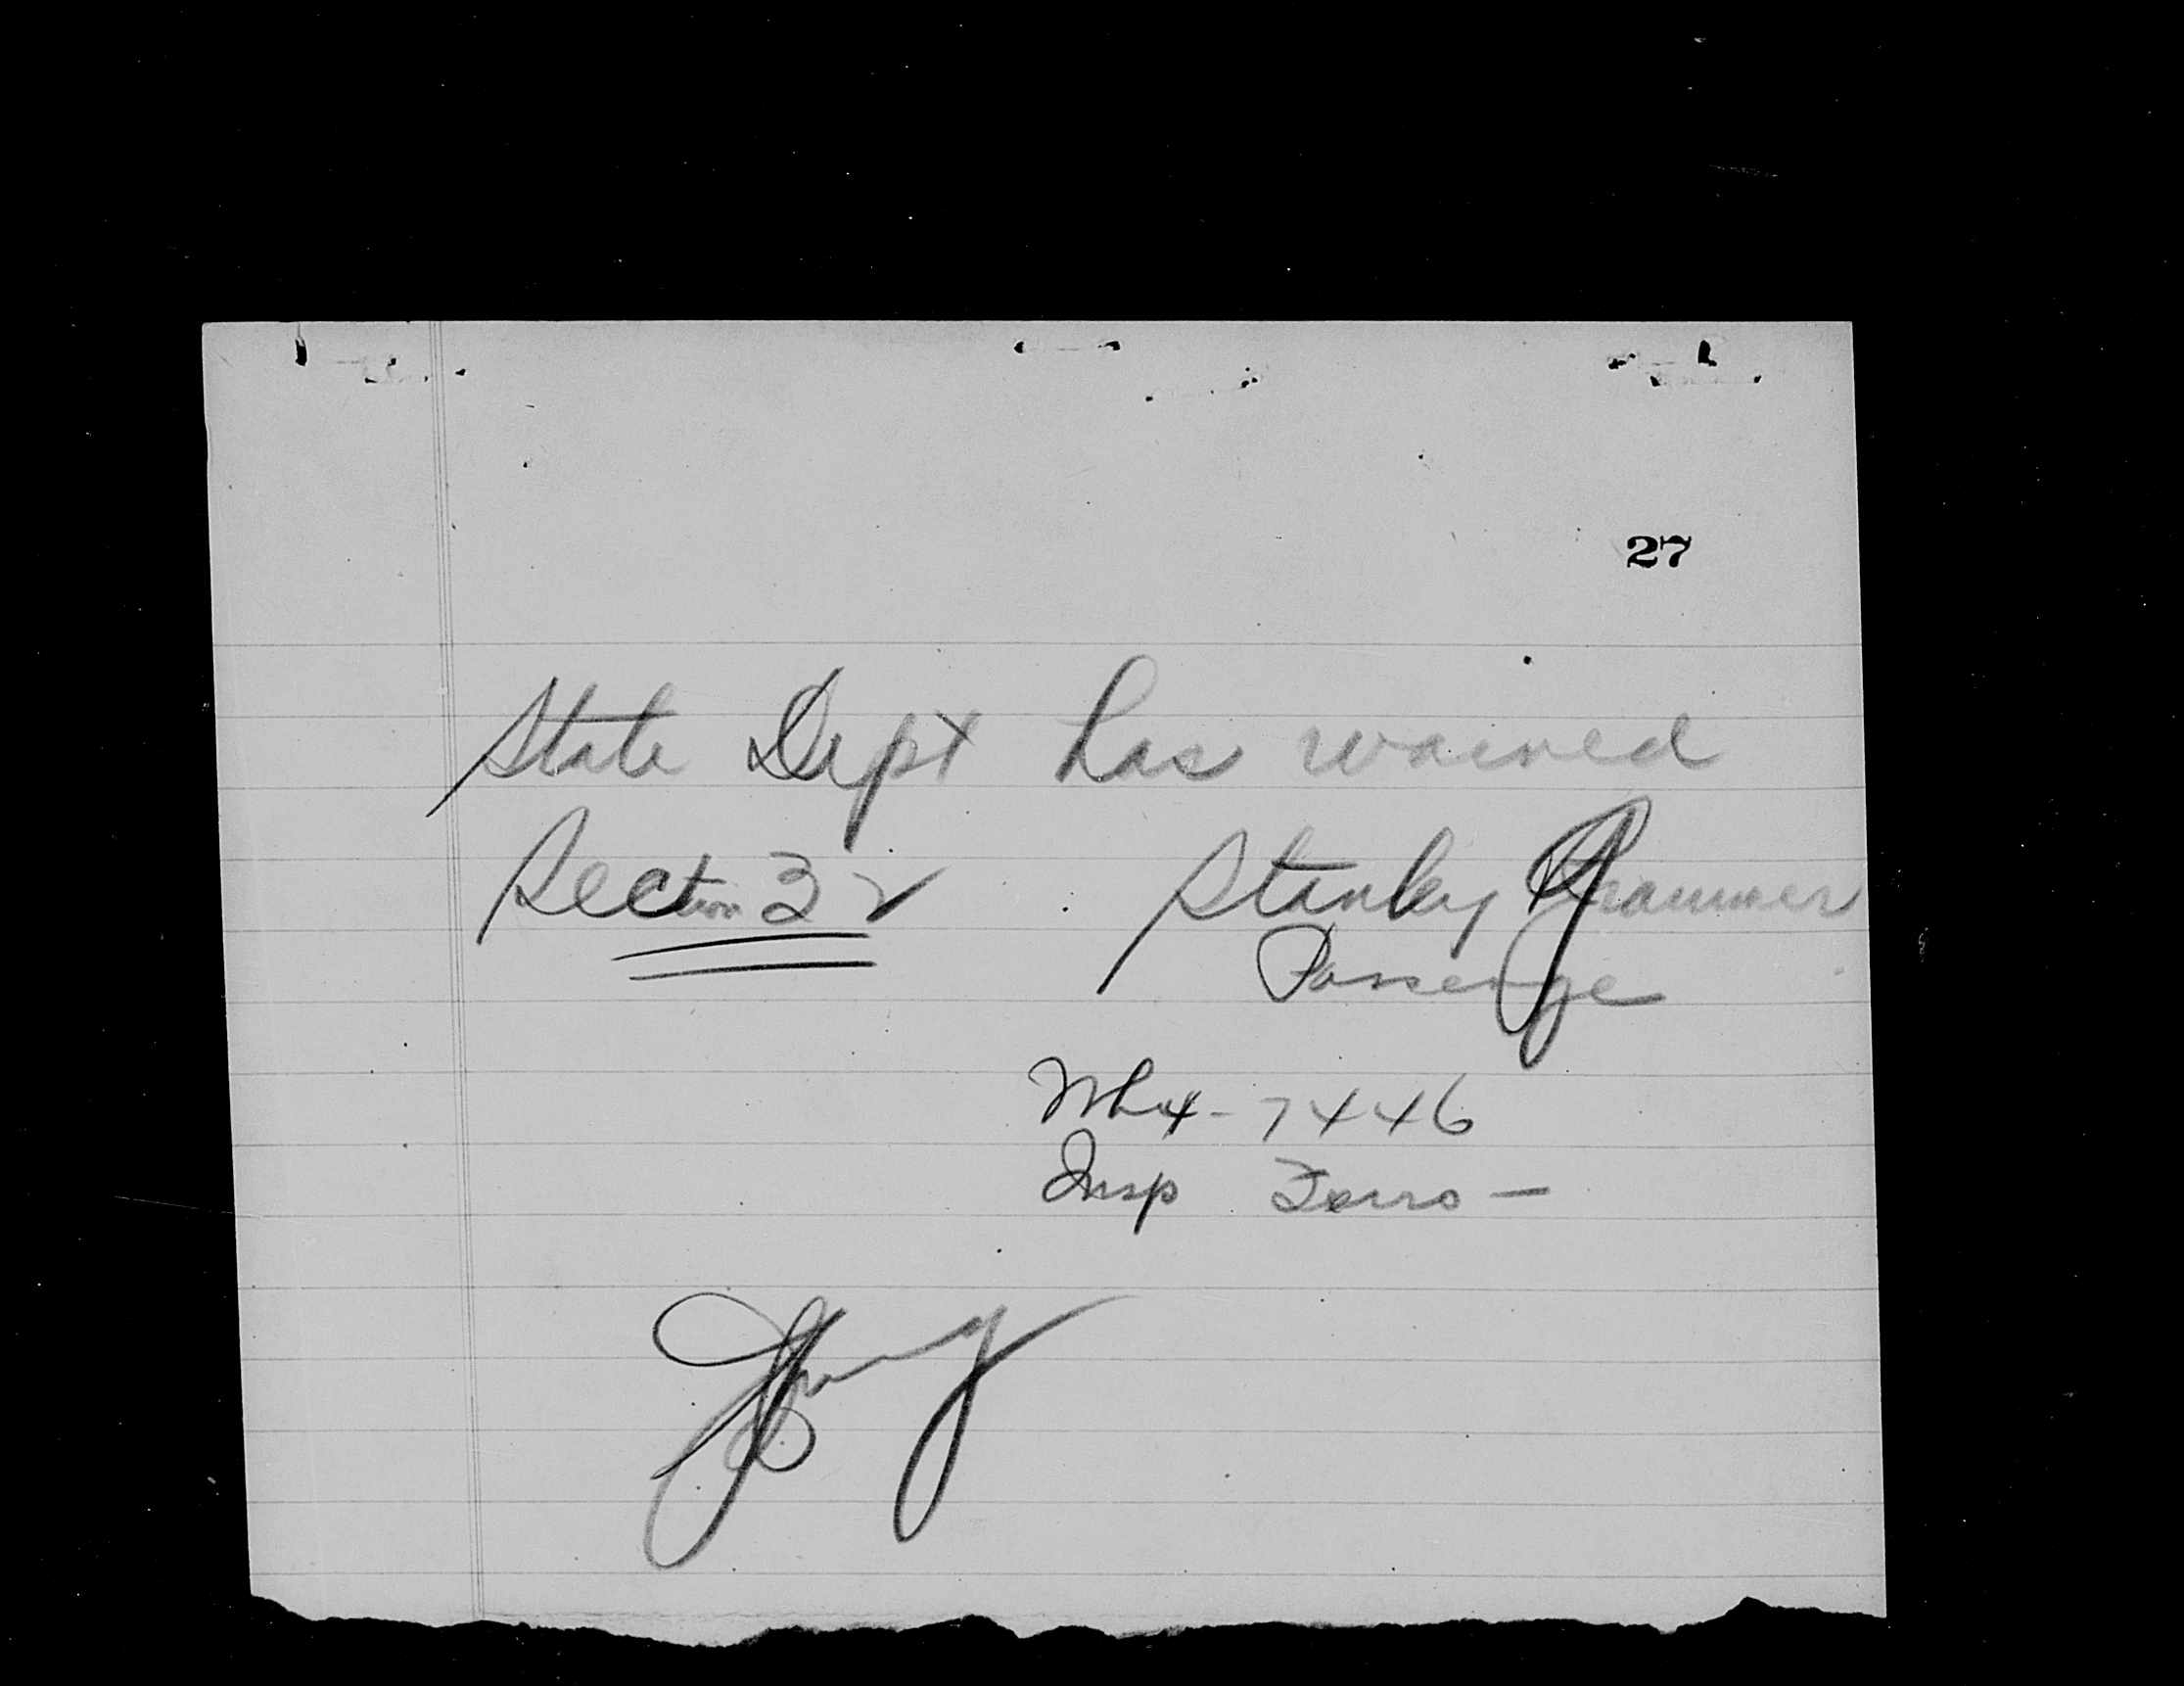 27
State Dept has waived
Section 32 Stanley
Passenge
Wh4-7446
Insp Ferro -